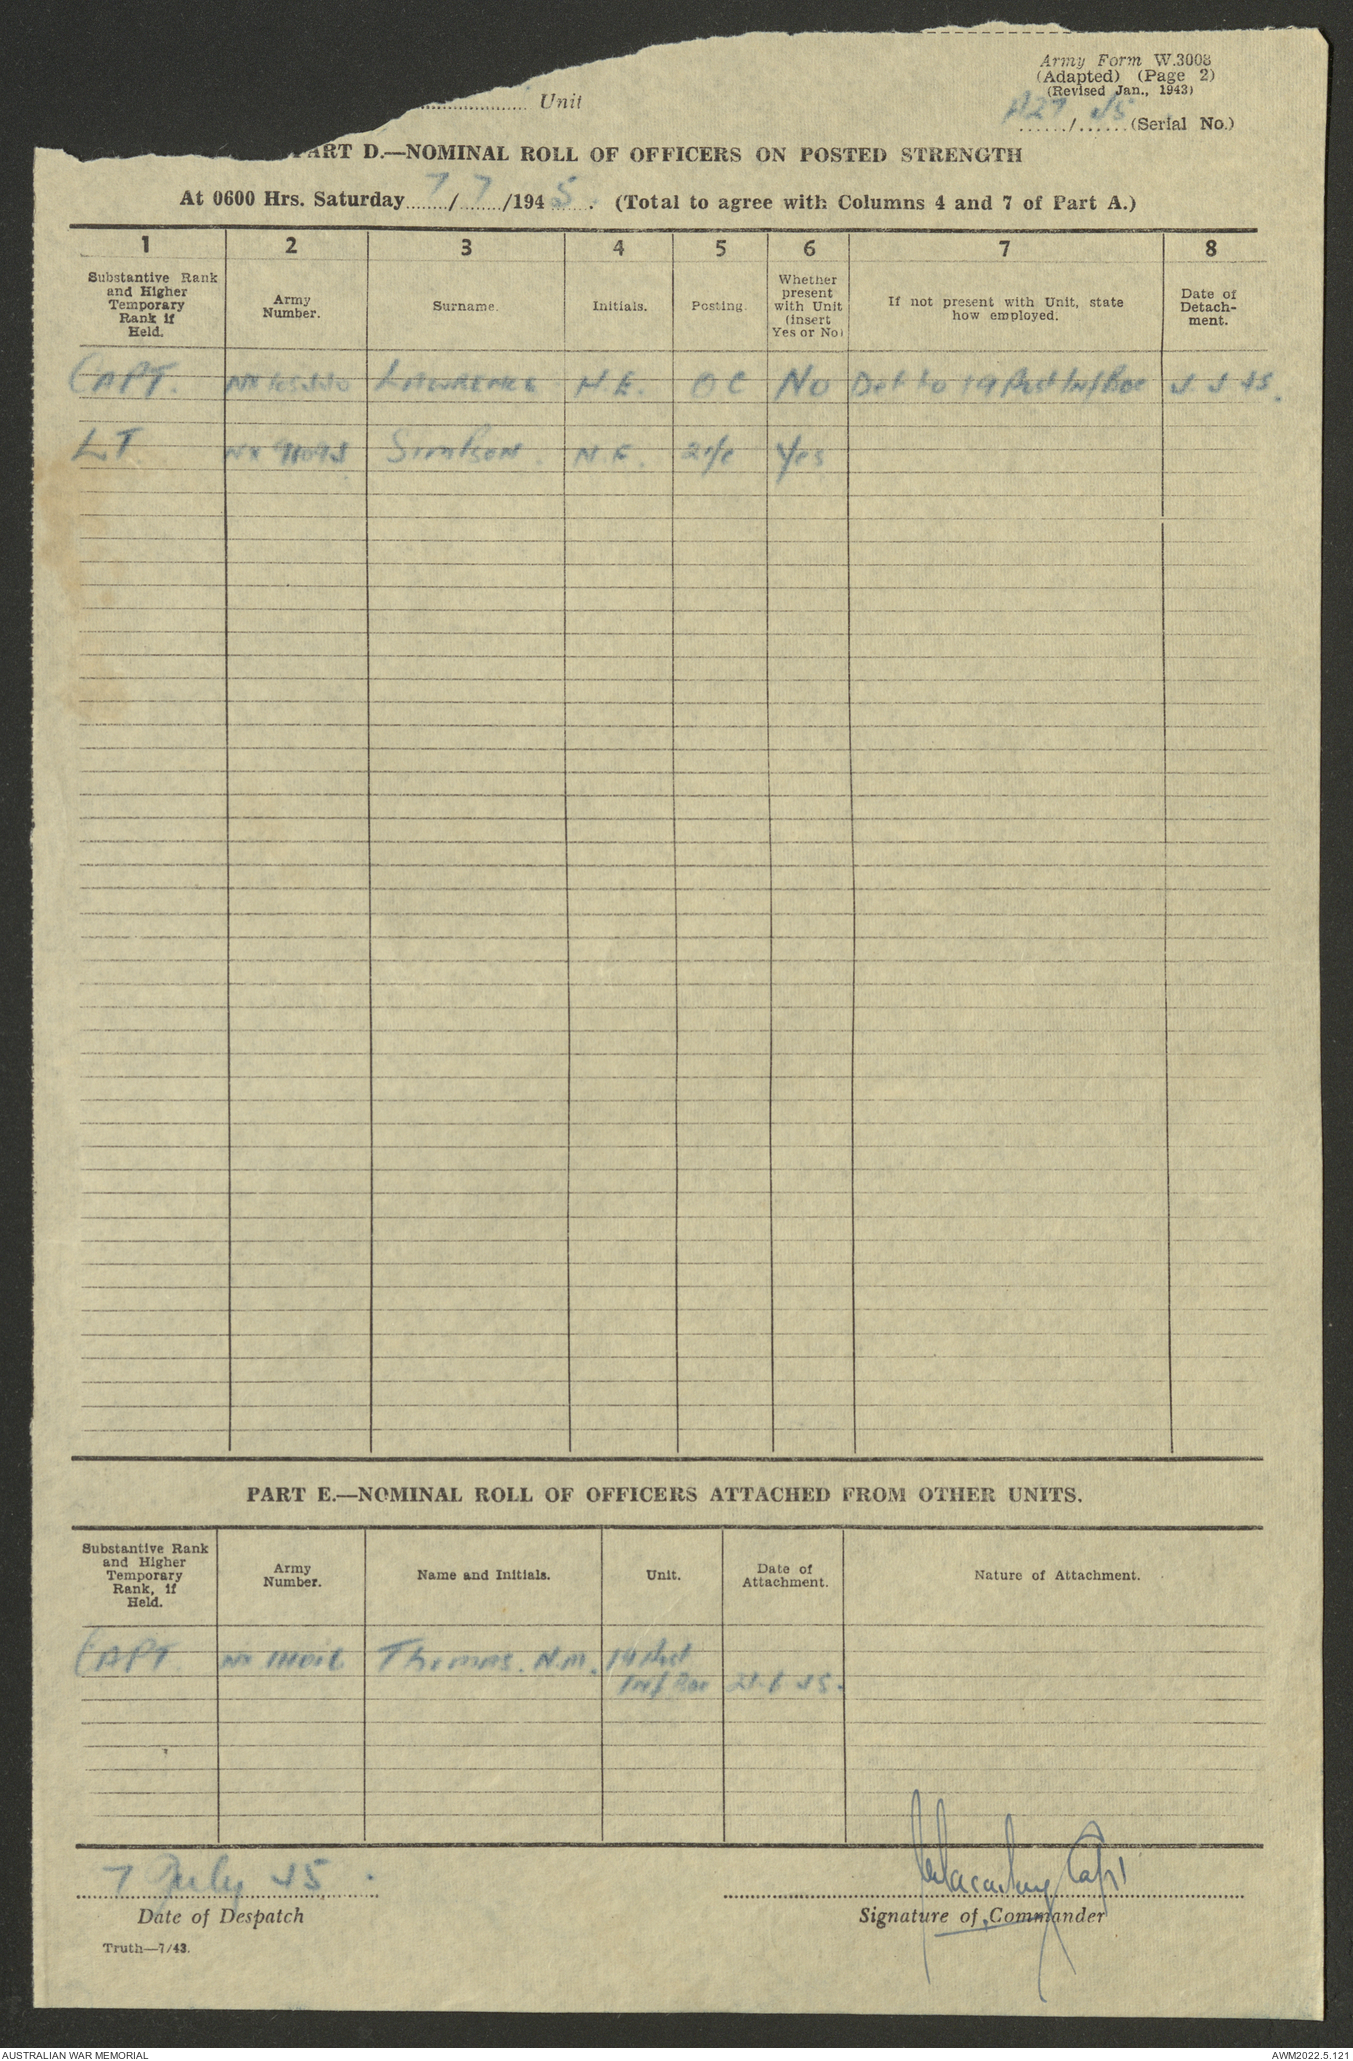 Army Form W.3008
(Adapted) (Page 2)
(Revised Jan., 1943)
Unit
A27 45
....../......(Serial No.)
PART D.—NOMINAL ROLL OF OFFICERS ON POSTED STRENGTH
At 0600 Hrs. Saturday 7/7/1945. (Total to agree with Columns 4 and 7 of Part A.)
1 2 3 4 5 6 7 8
Substantive Rank and Higher Temporary Rank if Held. Army Number. Surname. Initials. Posting. Whether present with Unit (insert Yes or No) If not present with Unit, state how employed. Date of Detach-ment.
CAPT. LAWRENCE OC No Det to 19 Aust Inf Bde
LT Simpson. N.E. 2i/c Yes
PART E.—NOMINAL ROLL OF OFFICERS ATTACHED FROM OTHER UNITS.
Substantive Rank and Higher Temporary Rank, if Held. Army Number. Name and Initials. Unit. Date of Attachment. Nature of Attachment.
CAPT. Thomas. N.M. 19 Aust
Inf Bde
7 July 45.
Capt
Date of Despatch
Signature of Commander
Truth—7/43.
AUSTRALIAN WAR MEMORIAL
AWM2022.5.121